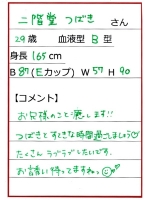 二階堂 つばき さん
29歳 血液型 B 型
身長 165 cm
B 87 (Eカップ) W 57 H 90
【コメント】
お兄様のこと癒します!!
つばきとすてきな時間過ごしましょう♡
たくさんラブラブしたいです。
お誘い待ってますね♡